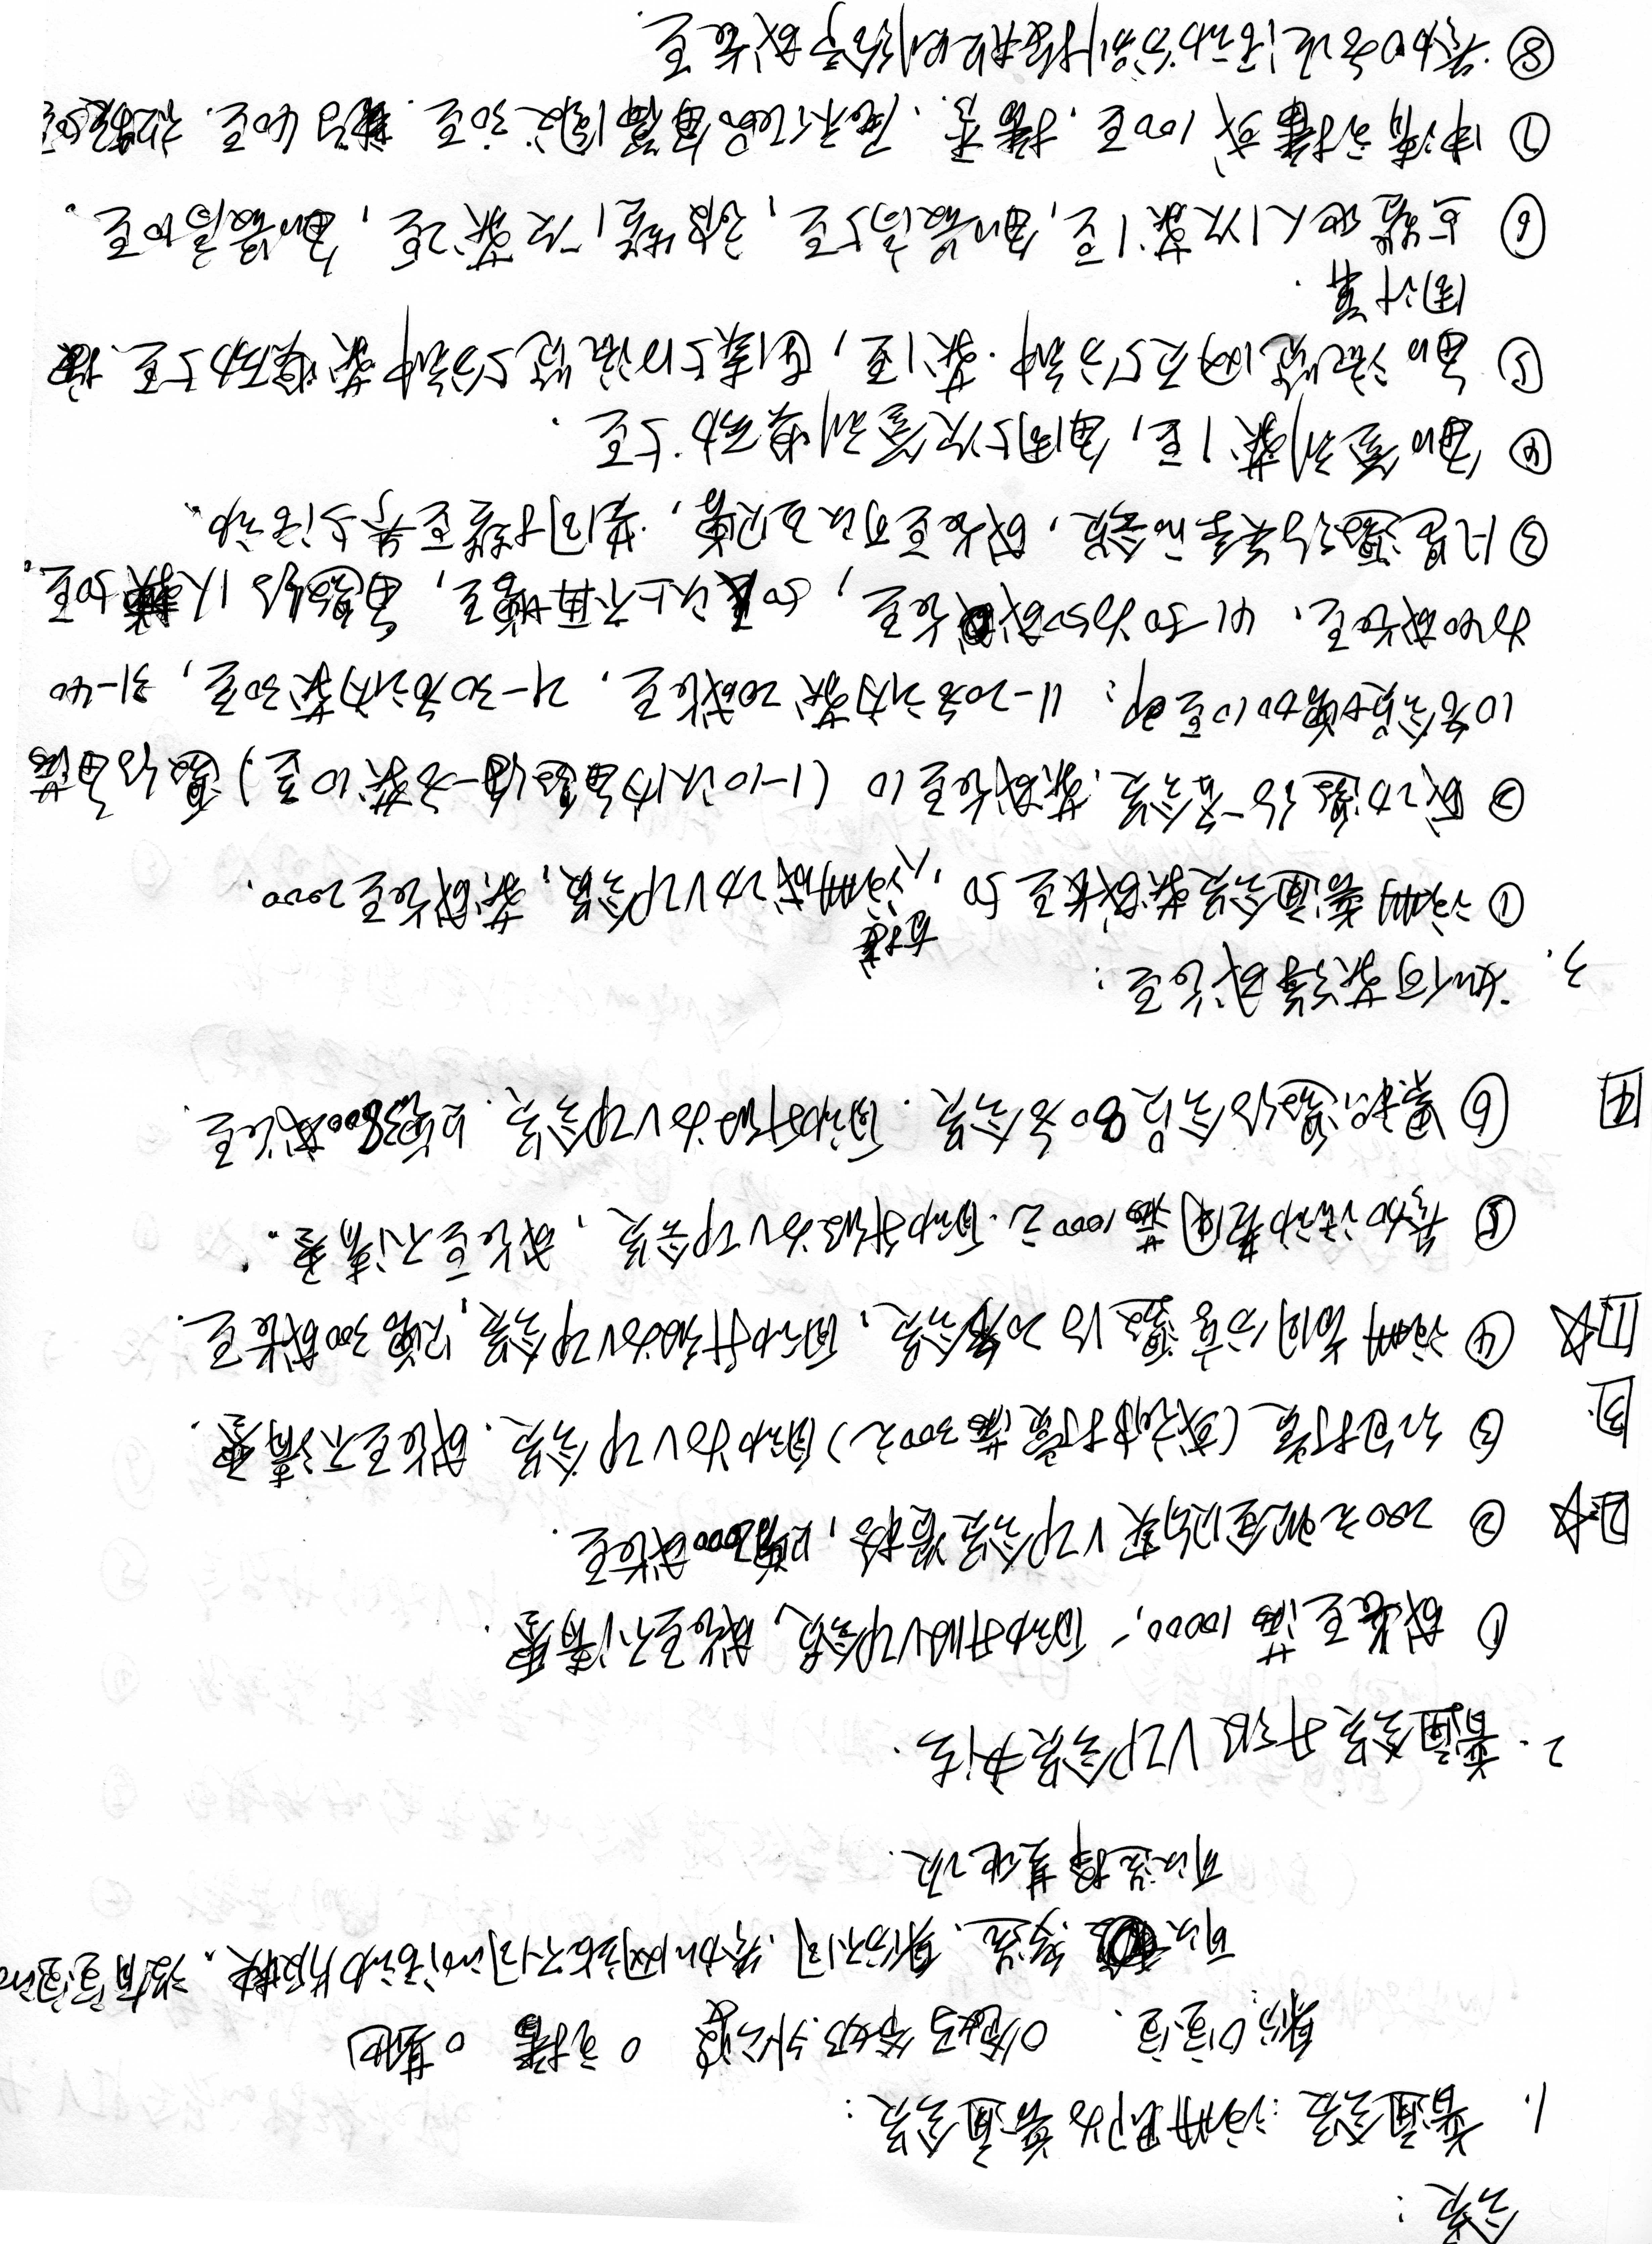 会员：
1. 普通会员：注册即为普通会员：
身份：○宝宝、 ○爸妈爷奶、外公婆 ○主播 ○其他
可以多选、身份不同、参加网站不同的活动版块。没有宝宝的
可以选择其他项.
2. 普通会员升级VIP会员办法.
① 成长豆满10000，自动升级VIP会员，成长豆不清零.
[2]☆ ② 200元现金购买VIP会员资格，赠2000成长豆.
[3]. ③ 红包打赏（或被打赏满300元）自动为VIP会员、成长豆不清零.
[1]☆ ④ 注册首周分享邀约20名会员、自动升级为VIP会员，赠300成长豆.
⑤ 参加活动费用满1000元.自动升级为VIP会员、成长豆不清零.
[4] ⑥ 累积邀约会员80名会员.自动升级为VIP会员.赠3800成长豆.
3. 如何获得成长豆：
① 注册普通会员获成长豆50，直接注册成功VIP会员，获成长豆2000、
② 成功邀约一名会员、获成长豆10（1-10以内每邀约一名获10豆）邀约每满
10名会员增加10豆即：11-20名之内获20成长豆，21-30名之内获30豆，31-40
为40成长豆、41-50为50成长豆，50以上不再增豆，每邀约1人获50豆。
③ 凡是邀约关系的会员，成长豆可以互赠，共同攒豆参与活动。
④ 每日签到获1豆，每周5次签到奖励5豆.
⑤ 每日流览网页5分钟.获1豆，连续5日流览5分钟获奖励5豆、按
周计算.
⑥ 点赞他人1次获1豆，每日最高5豆，被赞1次获2豆，每日最高10豆。
⑦ 申请主播或100豆.播秀、展示作品每篇图文30豆. 40豆.视频50豆
⑧ 参加各项活动分别按规则给予成长豆.